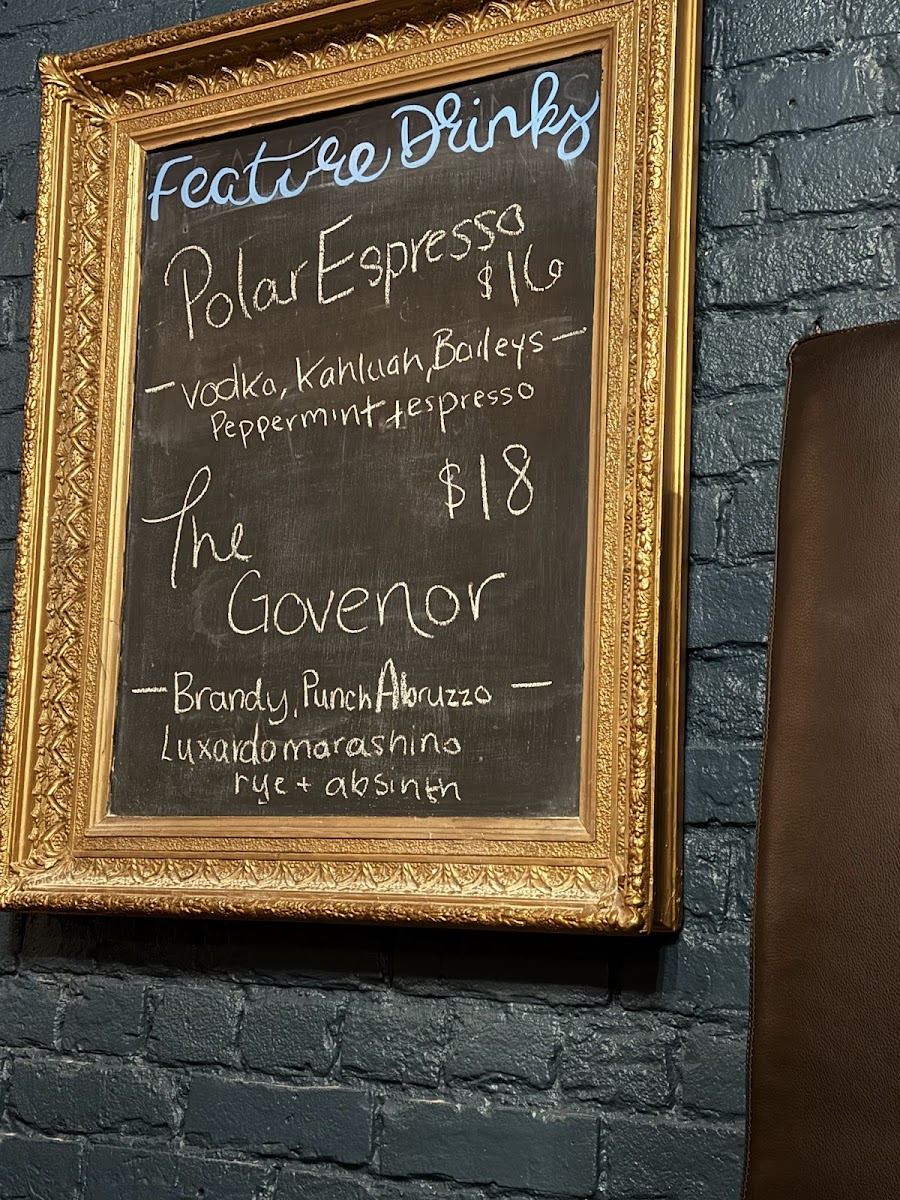 Feature Drinks
Polar Espresso
$16
- Vodka, Kahluah, Baileys -
Peppermint + espresso
$18
The
Govenor
- Brandy, Punch Abruzzo -
Luxardo marashino
rye + absinth